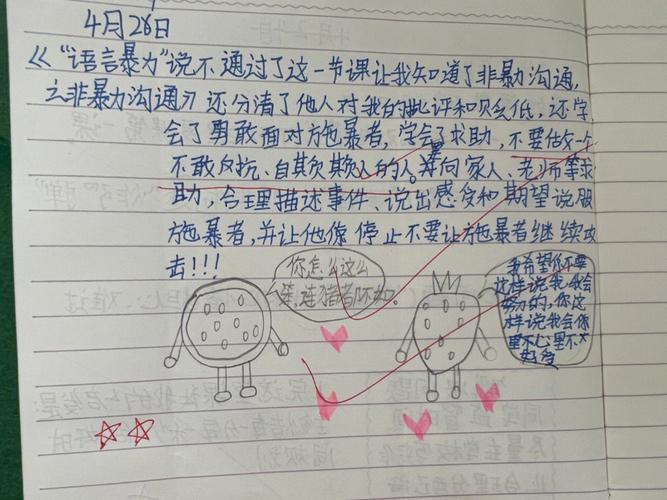 4月26日
《“语言暴力”说不 通过了这一节课让我知道了非暴力沟通,
之非暴力沟通》 还分清了他人对我的批评和贬低,还学
会了勇敢面对施暴者,学会了求助,不要做一个
不敢反抗、自欺欺人的人。要向家人、老师等求
助,合理描述事件、说出感受和期望说服
施暴者,并让他停止不要让施暴者继续攻
击!!!
你怎么这么
笨,连猪都不如。
我希望你不要
这样说我,我会
努力的,你这
样说我会你
里不心里不